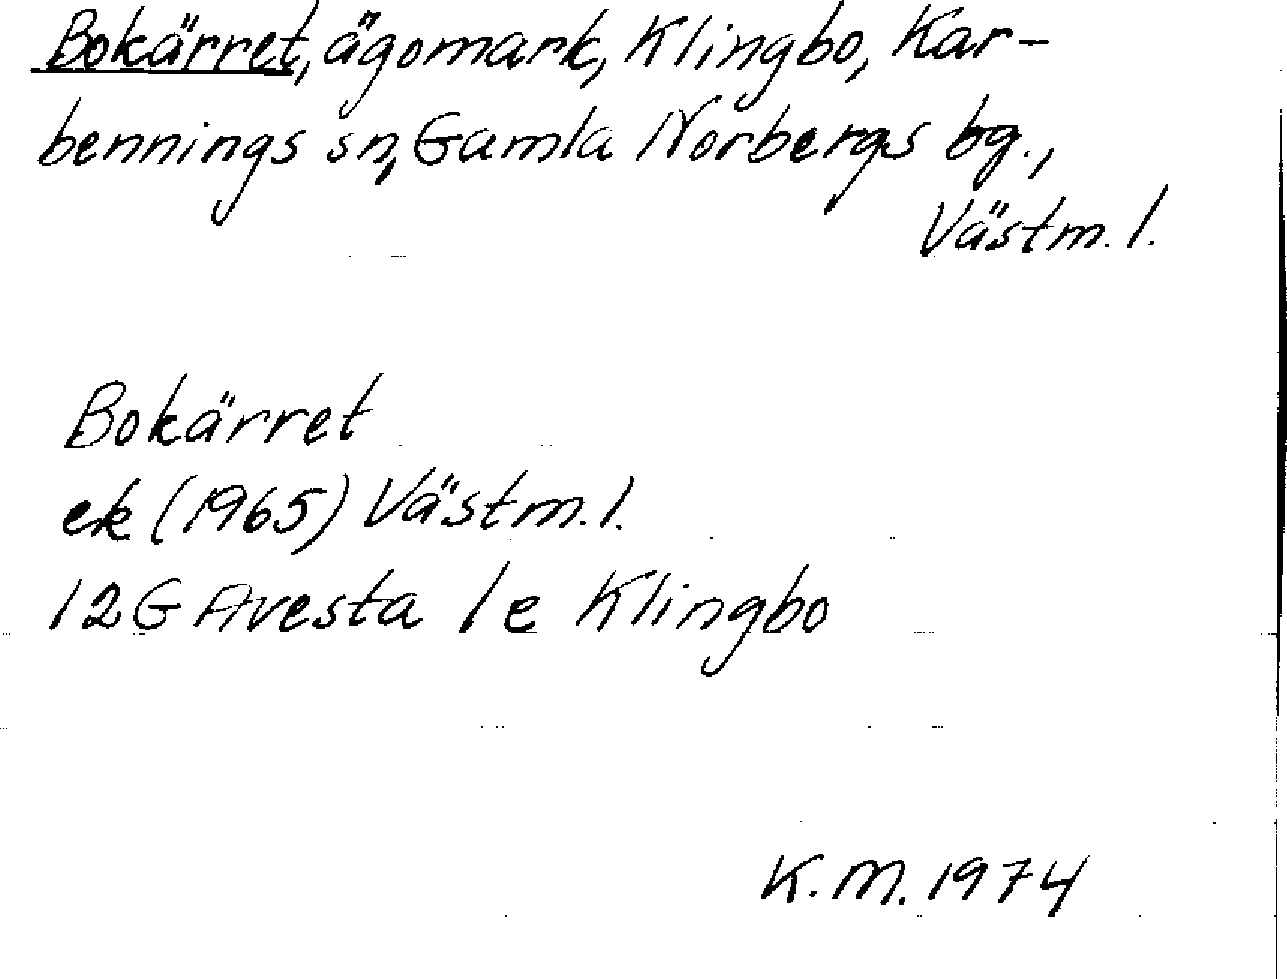 Bokärret, ägomark, Klingbo, Kar-
bennings sn, Gamla Norbergs bg.,
Västm. l.
Bokärret
ek (1965) Västm. l.
12G Avesta 1e Klingbo
K.M. 1974